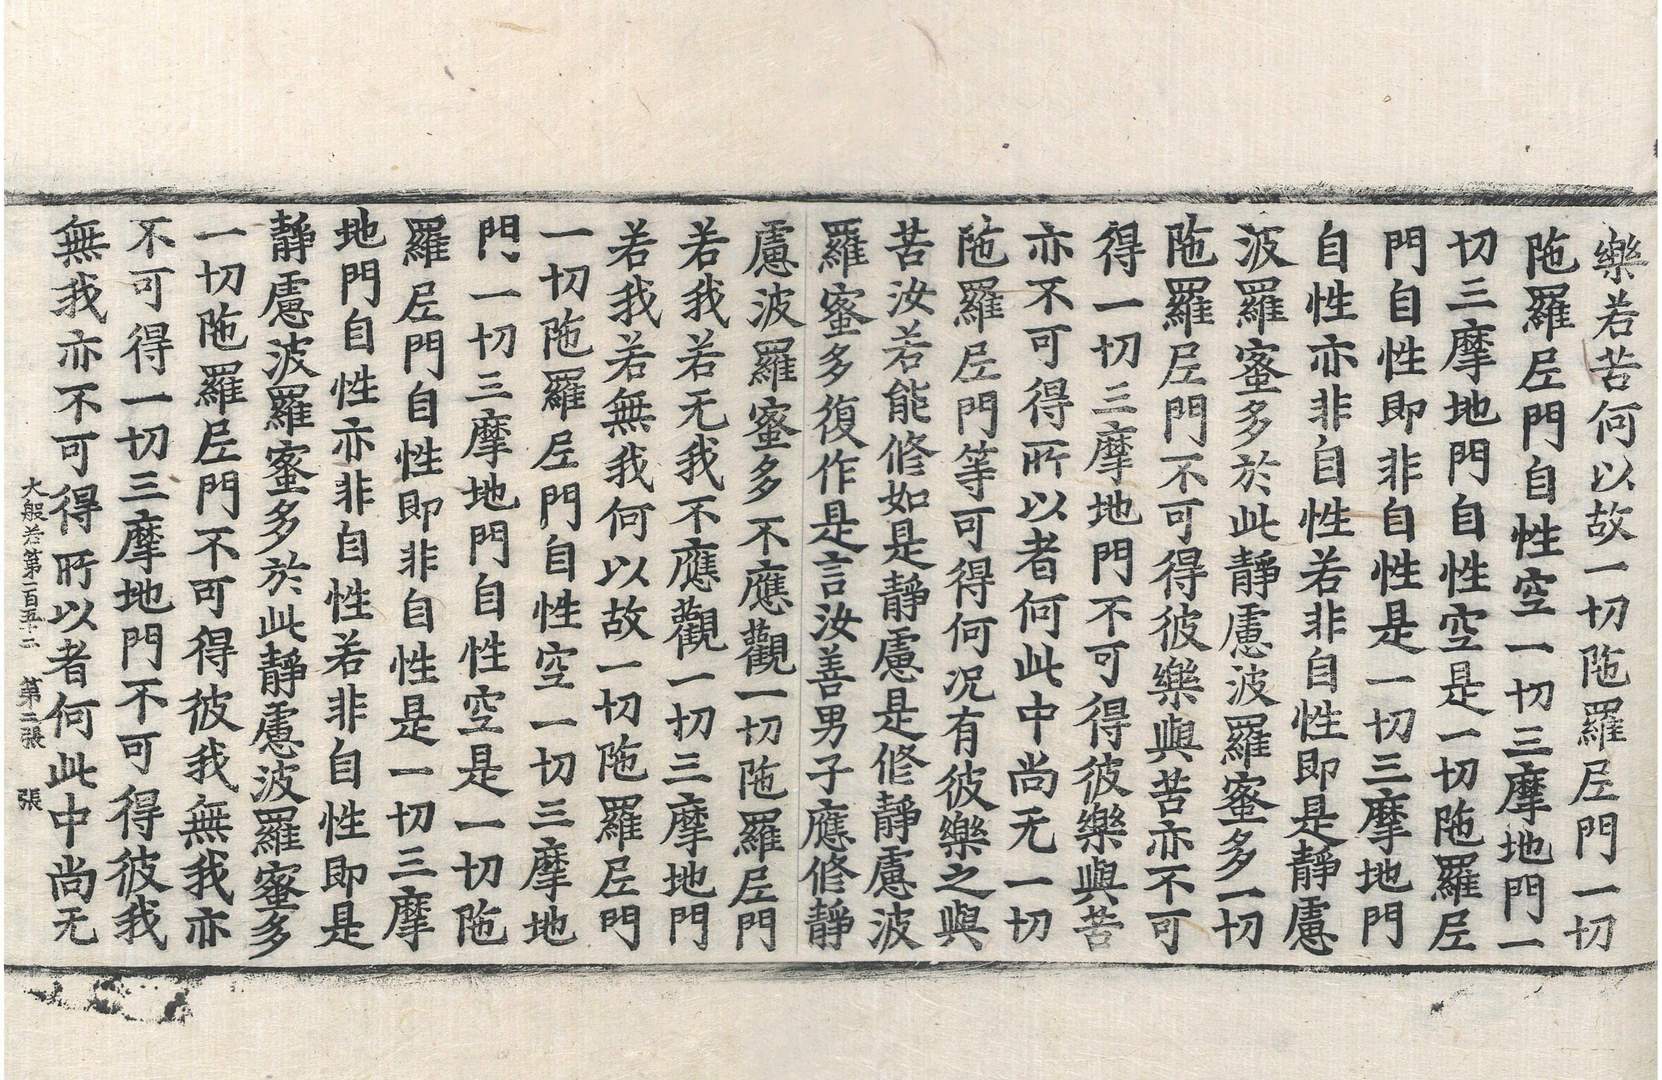 樂若苦何以故一切陁羅尼門一切
陁羅尼門自性空一切三摩地門一
切三摩地門自性空是一切陁羅尼
門自性即非自性是一切三摩地門
自性亦非自性若非自性即是靜慮
波羅蜜多於此靜慮波羅蜜多一切
陁羅尼門不可得彼樂與苦亦不可
得一切三摩地門不可得彼樂與苦
亦不可得所以者何此中尚无一切
陁羅尼門等可得何况有彼樂之與
苦汝若能修如是靜慮是修靜慮波
羅蜜多復作是言汝善男子應修靜
慮波羅蜜多不應觀一切陁羅尼門
若我若无我不應觀一切三摩地門
若我若無我何以故一切陁羅尼門
一切陁羅尼門自性空一切三摩地
門一切三摩地門自性空是一切陁
羅尼門自性即非自性是一切三摩
地門自性亦非自性若非自性即是
靜慮波羅蜜多於此靜慮波羅蜜多
一切陁羅尼門不可得彼我無我亦
不可得一切三摩地門不可得彼我
無我亦不可得所以者何此中尚无
大般若第一百五十二 第二張 張